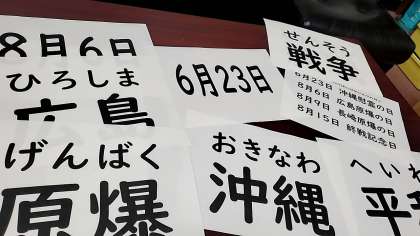 8月6日
ひろしま
広島
6月23日
せんそう
戦争
6月23日 沖縄慰霊の日
8月6日 広島原爆の日
8月9日 長崎原爆の日
8月15日 終戦記念日
げんばく
原爆
おきなわ
沖縄
へいわ
平